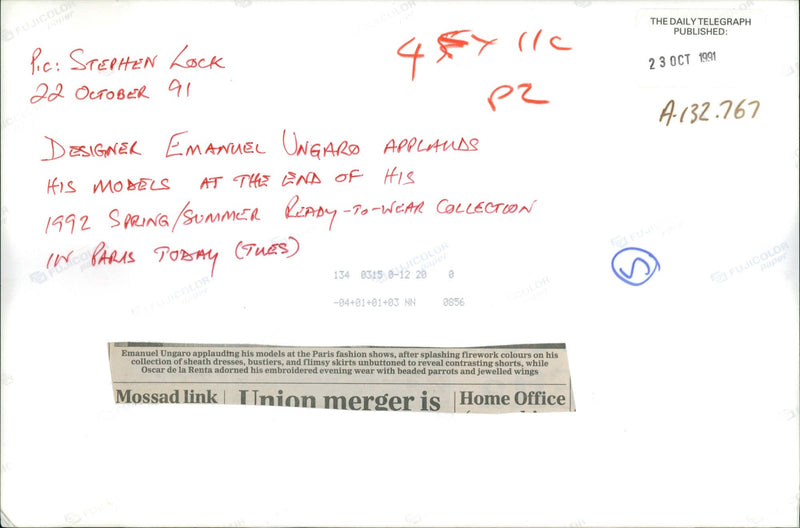 THE DAILY TELEGRAPH
PUBLISHED:
23 OCT 1991
A.132.767
Pic: STEPHEN LOCK
22 OCTOBER 91
11C
P2
DESIGNER EMANUEL UNGARO APPLAUDS
HIS MODELS AT THE END OF HIS
1992 SPRING/SUMMER READY-TO-WEAR COLLECTION
IN PARIS TODAY (TUES)
S
134 0315 0-12 20 0
-04+01+01+03 NN 0856
Emanuel Ungaro applauding his models at the Paris fashion shows, after splashing firework colours on his
collection of sheath dresses, bustiers, and flimsy skirts unbuttoned to reveal contrasting shorts, while
Oscar de la Renta adorned his embroidered evening wear with beaded parrots and jewelled wings
Mossad link
Union merger is
Home Office
FUJICOLOR
paper